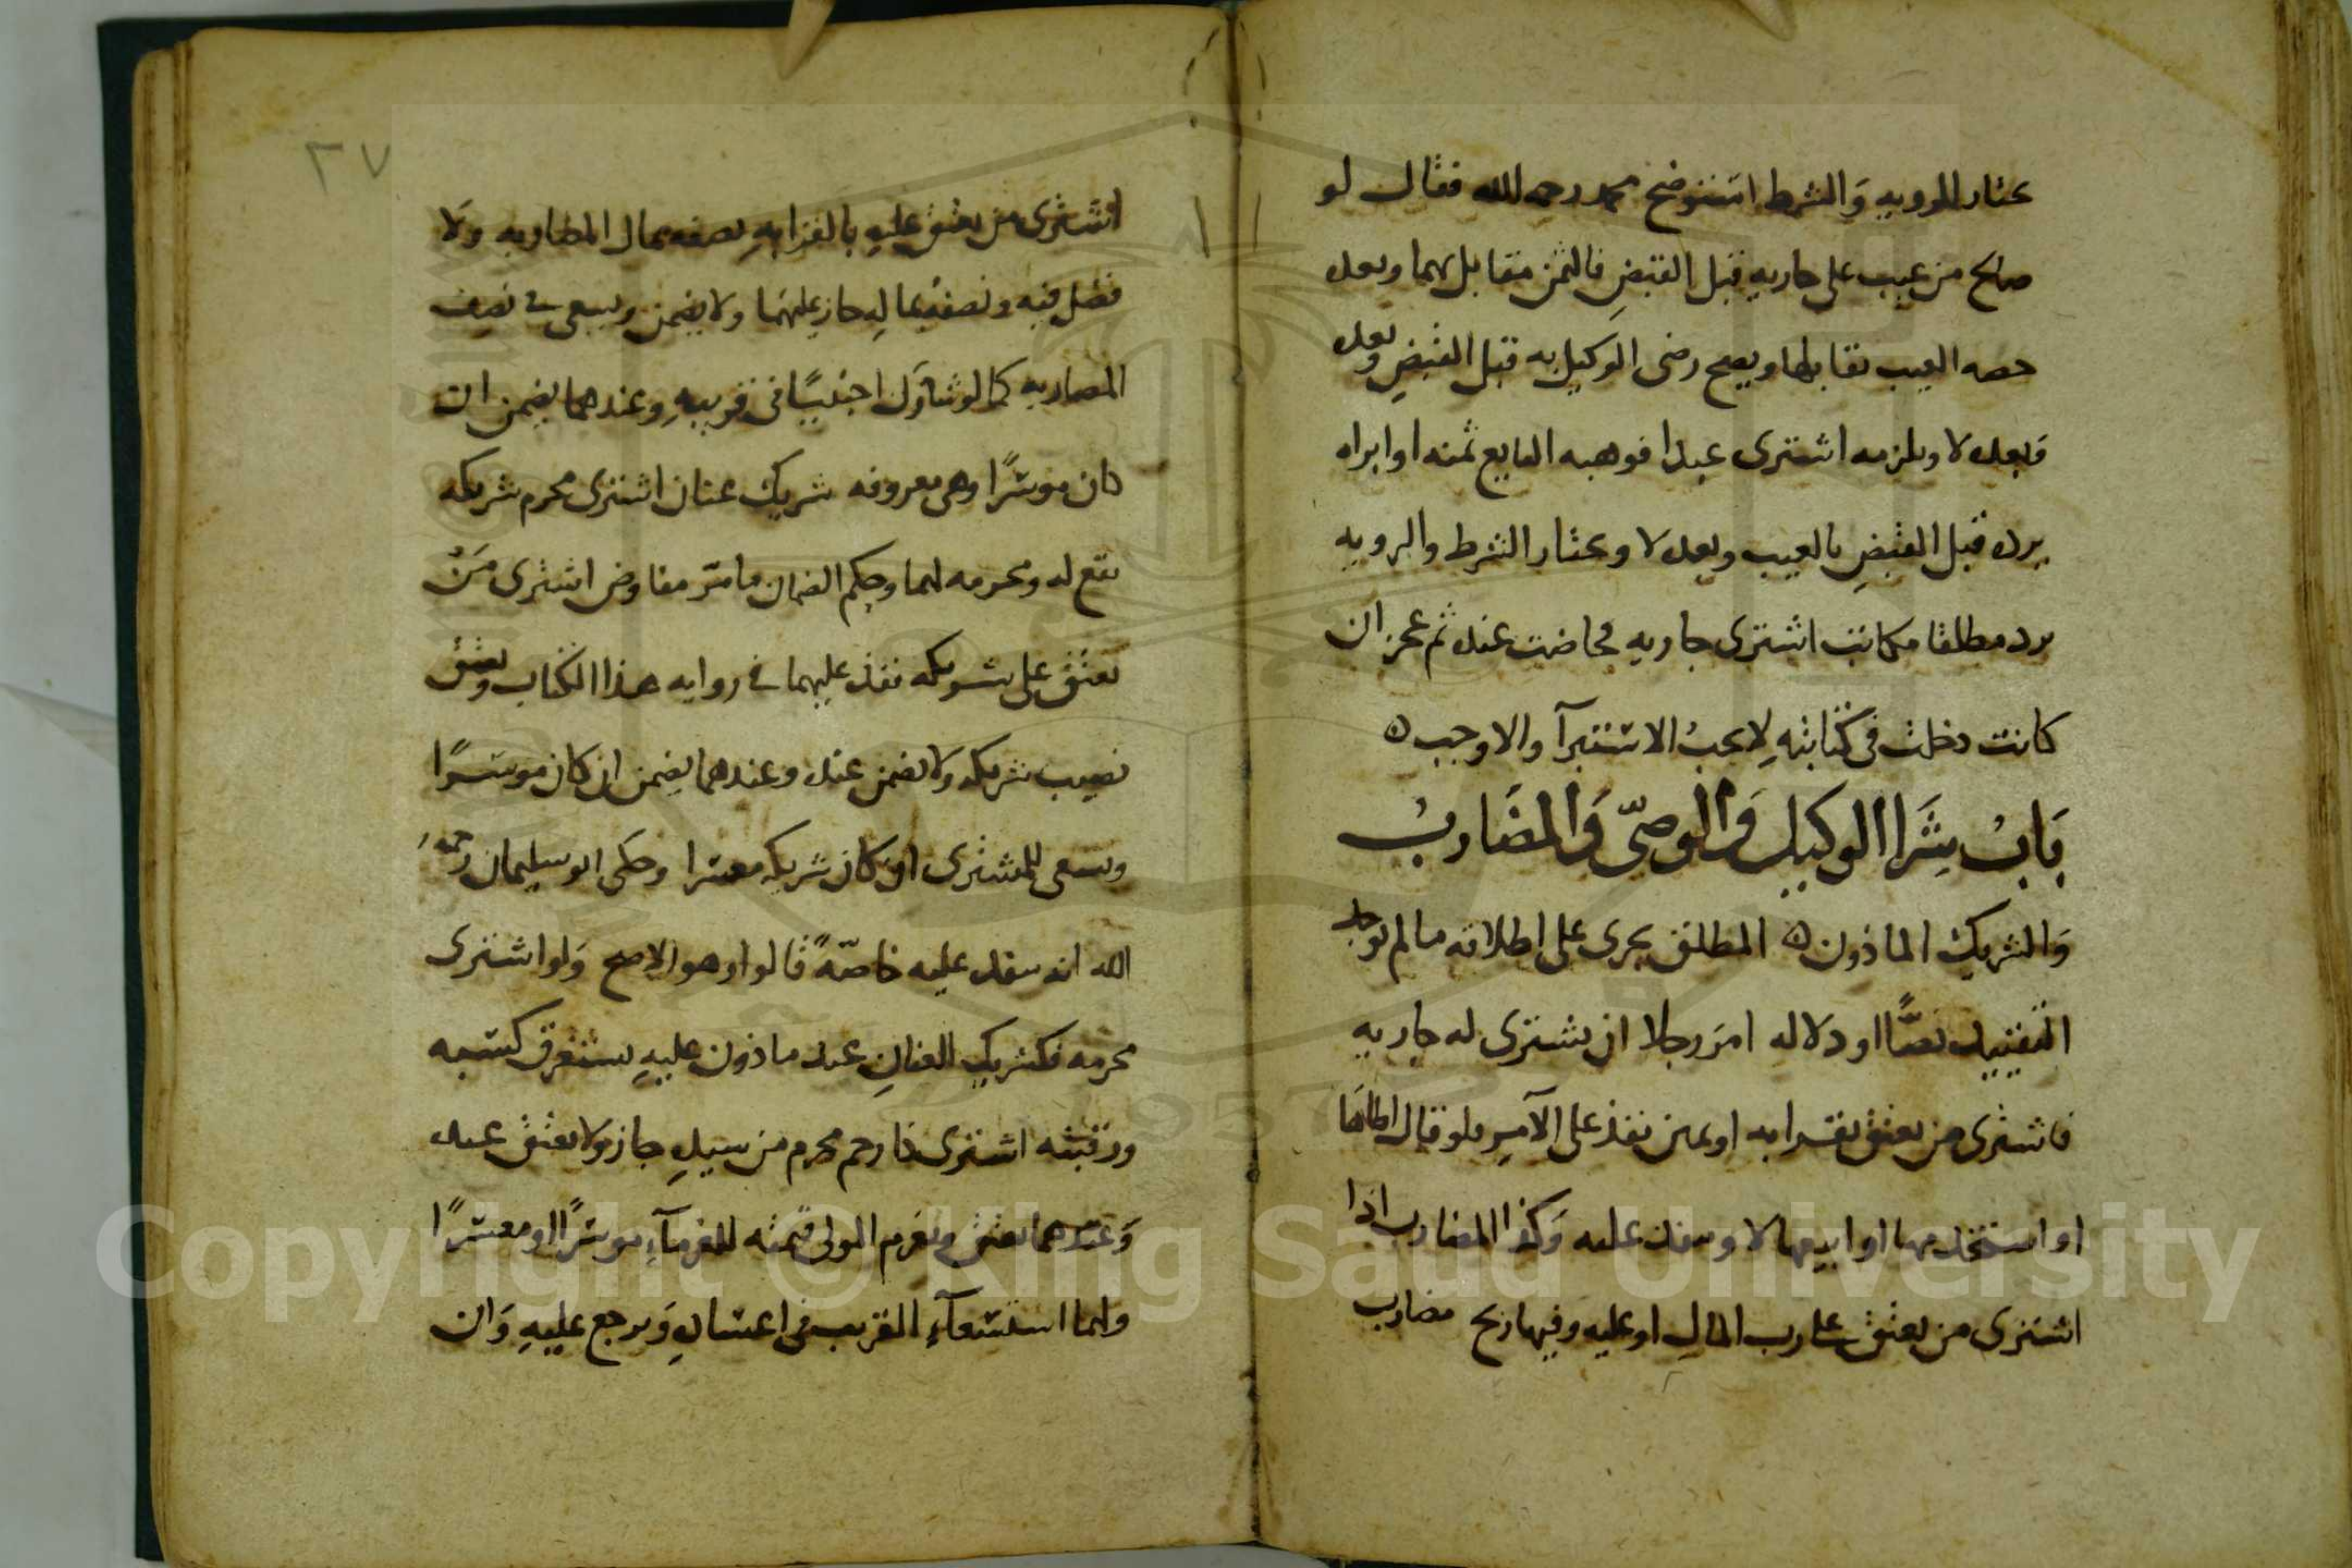 بخيار الرويه والشرط استوضح محمد رحمه الله فقال لو
صالح من عيب على جاريه قبل القبض فالثمن مقابل بهما وبعده
حصه العيب تقابلها ويصح رضى الوكيل به قبل القبض وبعده
وبعده لا ويلزمه اشترى عبدا فوهبه البايع ثمنه او ابراه
يرده قبل القبض بالعيب وبعده لا وبخيار الشرط والرويه
يرد مطلقا مكاتب اشترى جاريه فحاضت عنده ثم عجز ان
كانت دخلت في كتابته لا يجب الاستبرآ والا وجب ه
باب شرا الوكيل والوصي والمضارب
والشريك الماذون ه المطلق يجرى على اطلاقه ما لم يوجد
التقييد نصا او دلاله امر رجلا ان يشترى له جاريه
فاشترى من يعتق بقرابه او يمين نفذ على الآمر ولو قال اطاها
او استخدمها او ابيعها لا وينفذ عليه وكذا المضارب اذا
اشترى من يعتق على رب المال او عليه وفيها ربح مضارب
٢٧
اشترى من يعتق عليه بالقرابه نصفه بمال المضاربه ولا
فضل فيه ونصفه بماله جاز عليهما ولا يضمن ويسعى في نصيف
المضاربه كما لو شارك اجنبيا في قريبه وعندهما يضمن ان
كان موسرا وهى معروفه شريك عنان اشترى محرم شريكه
يقع له ومحرمه لهما وحكم الضمان ما مر مفاوض اشترى من
يعتق على شريكه نفذ عليهما في روايه هذا الكتاب ويعتق
نصيب شريكه ولا يضمن عنده وعندهما يضمن ان كان موسرا
ويسعى للمشترى ان كان شريكه معسرا وحكى ابو سليمان رحمه
الله انه ينفذ عليه خاصة قالوا وهو الاصح ولو اشترى
محرمه فكشريك العنان عبد ماذون عليه يستغرق كسبه
ورقبته اشترى ذا رحم محرم من سيده جاز ولا يعتق عنده
وعندهما يعتق ويغرم المولى قيمته للغرمآء موسرا او معسرا
ولهما استسعآء القريب في اعساره ويرجع عليه وان
Copyright © King Saud University